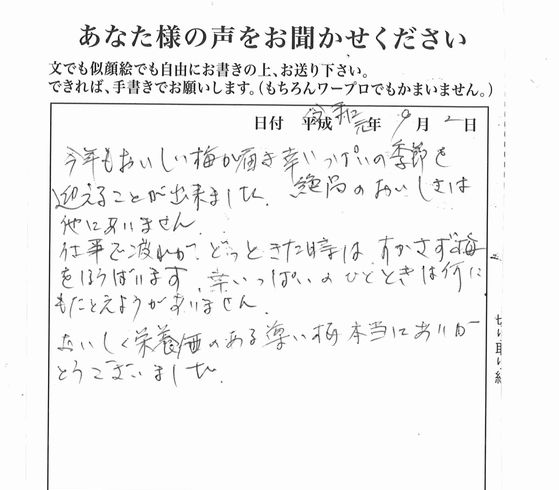 あなた様の声をお聞かせください
文でも似顔絵でも自由にお書きの上、お送り下さい。
できれば、手書きでお願いします。(もちろんワープロでもかまいません。)
日付 平成 令和 元年 9月 2日
今年もおいしい梅が届き幸いっぱいの季節を
迎えることが出来ました。絶品のおいしさは
他にありません。
仕事で疲れが、どっときた時は、すかさず梅
をほうばります。幸いっぱいのひとときは何に
もたとえようがありません。
おいしく栄養価のある尊い梅本当にありが
とうございました。
切り取り線